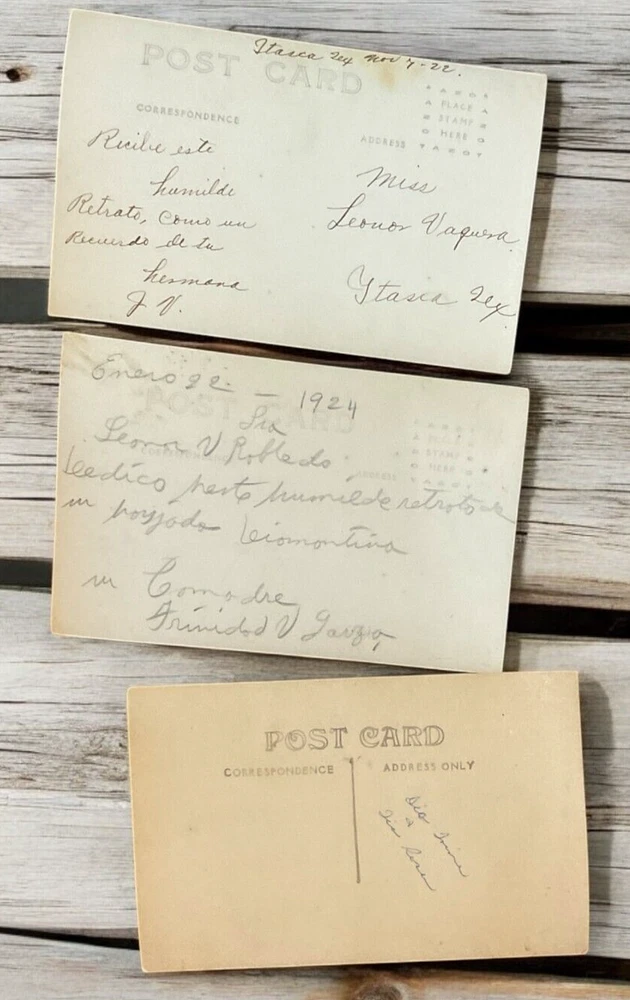 Itasca Tex Nov 7-22.
POST CARD
CORRESPONDENCE
PLACE
STAMP
HERE
ADDRESS
Recibe este
humilde
Retrato, Como un
Recuerdo de tu
hermana
J. V.
Miss
Leonor Vaquera.
Itasca Tex.
Enero 22 - 1924
POST CARD
CORRESPONDENCE
STAMP
HERE
ADDRESS
Sra
Leonor V Robledo
humilde retrato de
Comadre
Trinidad V Garza,
POST CARD
CORRESPONDENCE
ADDRESS ONLY
a